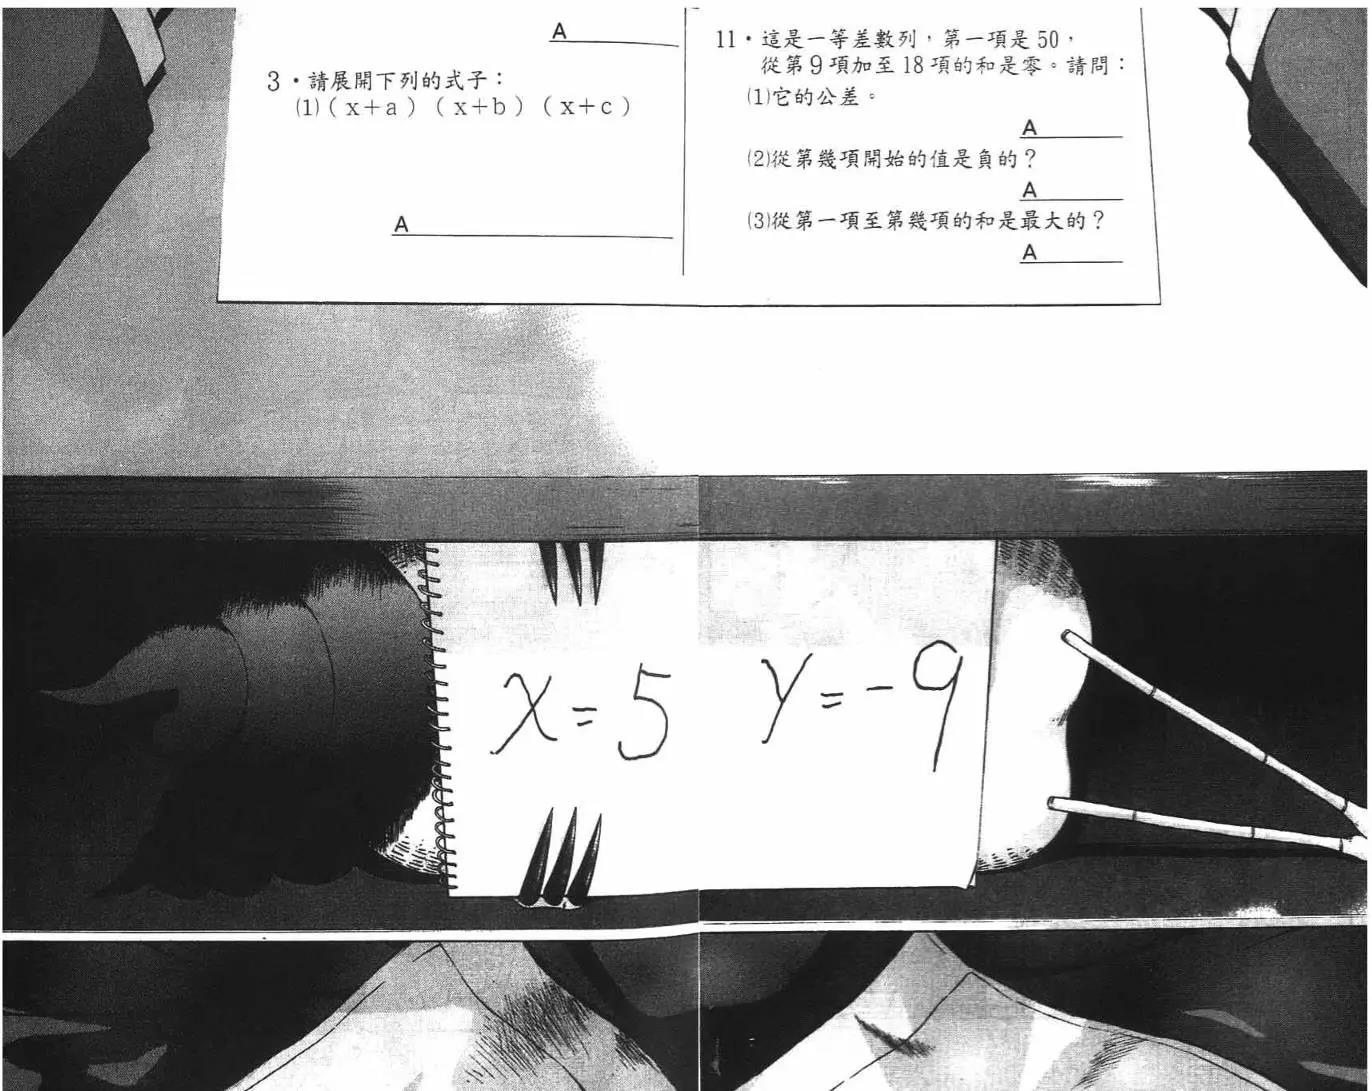 A
3・請展開下列的式子：
(1)(x+a)(x+b)(x+c)
A
11・這是一等差數列，第一項是50，
從第9項加至18項的和是零。請問：
(1)它的公差。
A
(2)從第幾項開始的值是負的？
A
(3)從第一項至第幾項的和是最大的？
A
x=5 y=-9